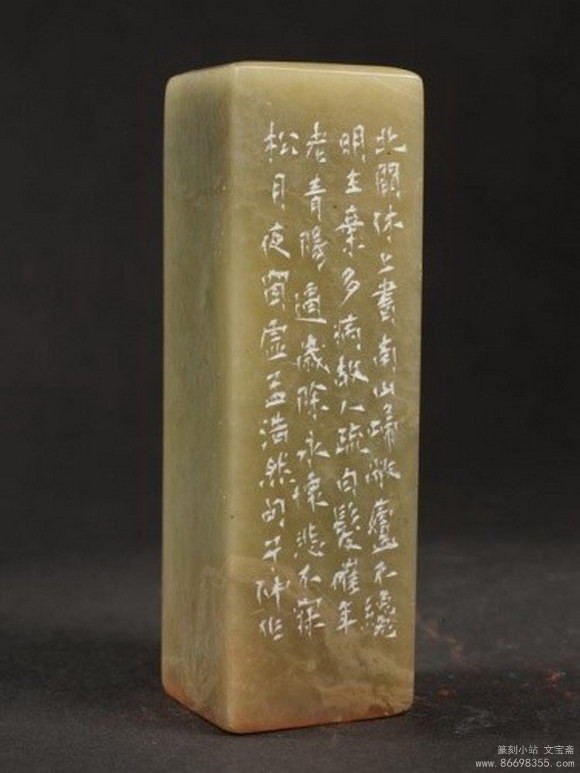 北闕休上書南山歸敝廬不纔
明主棄多病故人疏白髮催年
老青陽逼歲除永懷悲不寐
松月夜窗虛孟浩然句子作
篆刻小站 文宝斋
www.86698355.com